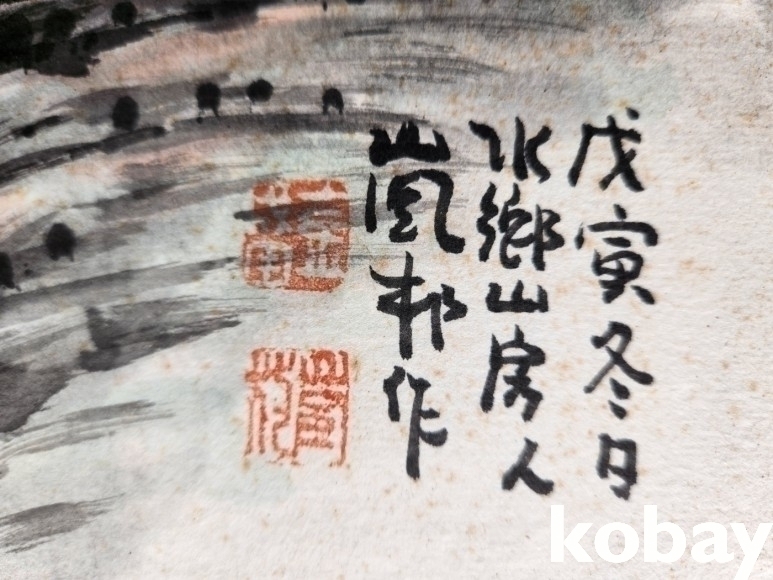 戊寅冬日
水鄉山房人
嵐邨作
kobay